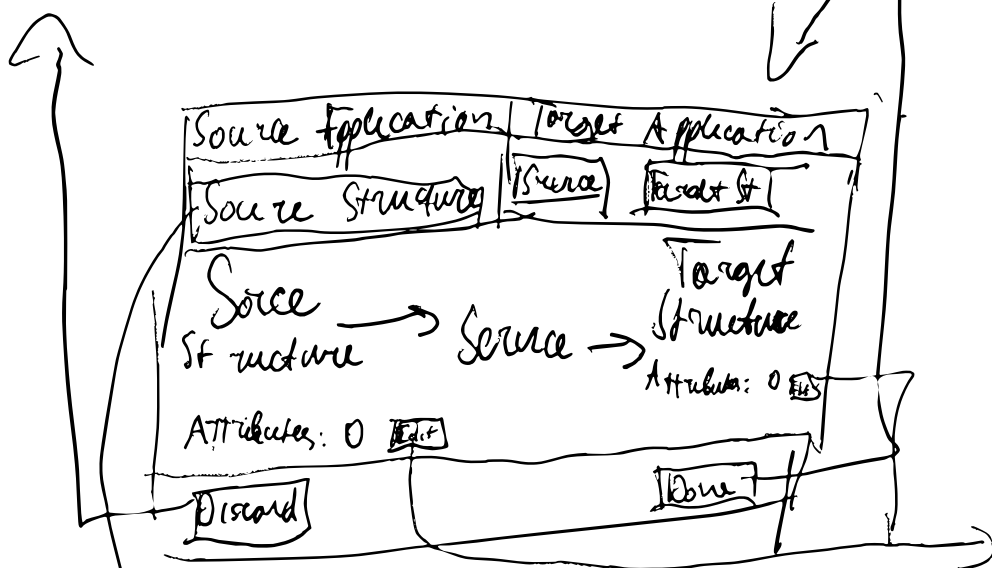 Source Application Target Application
Source Structure Service Target St
Sorce Structure Service Target Structure
Attributes: 0 Edit
Attributes: 0 Edit
Discard Done